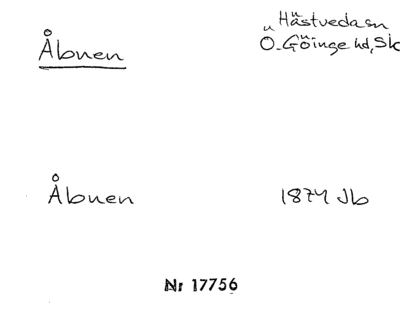 Åbnen
Hästveda sn
Ö. Göinge hd, Sk
Åbnen
1874 Jb
Nr 17756